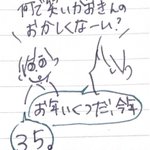 何で笑いかおきんの
おかしくなーい？
お年いくつだ、今年
35。